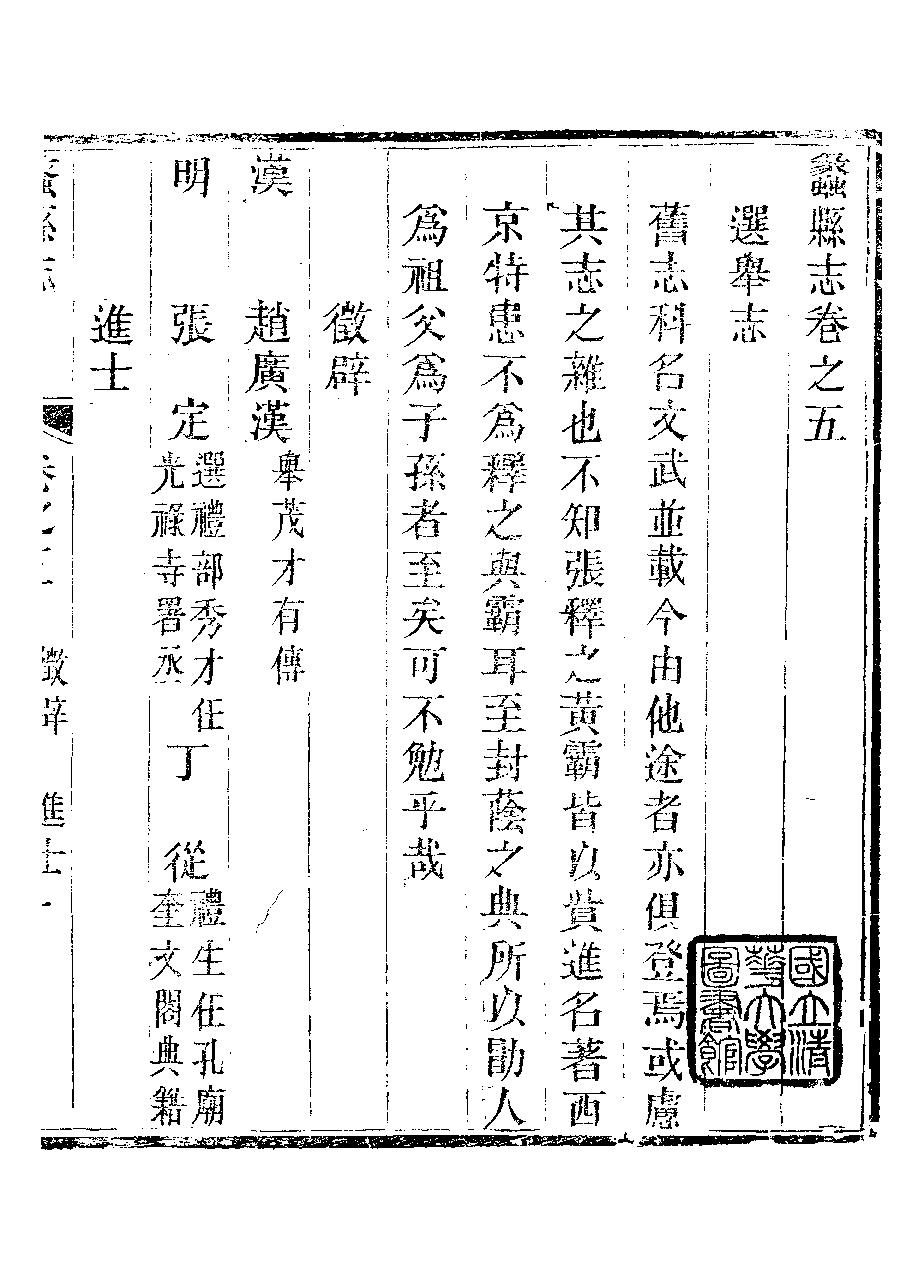 蠡縣志卷之五
選舉志
舊志科名文武並載今由他途者亦俱登焉或慮
其志之雜也不知張釋之黃霸皆以貲進名著西
京特患不爲釋之與霸耳至封蔭之典所以勖人
爲祖父爲子孫者至矣可不勉乎哉
徵辟
漢 趙廣漢 舉茂才有傳
明 張 定 選禮部秀才任
光祿寺署丞
丁 從 禮生任孔廟
奎文閣典籍
進士
蠡縣志 卷之五 徵辟 進士 一
國立清
華大學
圖書館